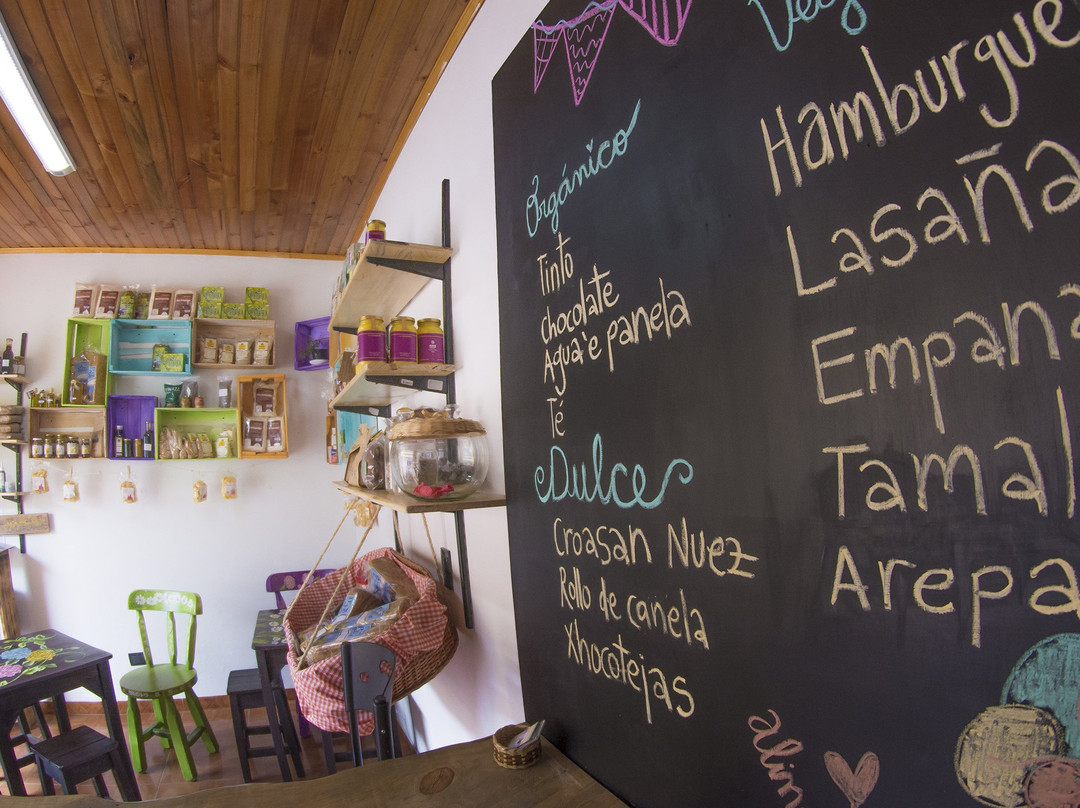 Orgánico
Tinto
Chocolate
Agua'e panela
Té
Dulce
Croasan Nuez
Rollo de canela
Xhocotejas
Veg
Hamburgue
Lasaña
Empana
Tamal
Arepa
alim